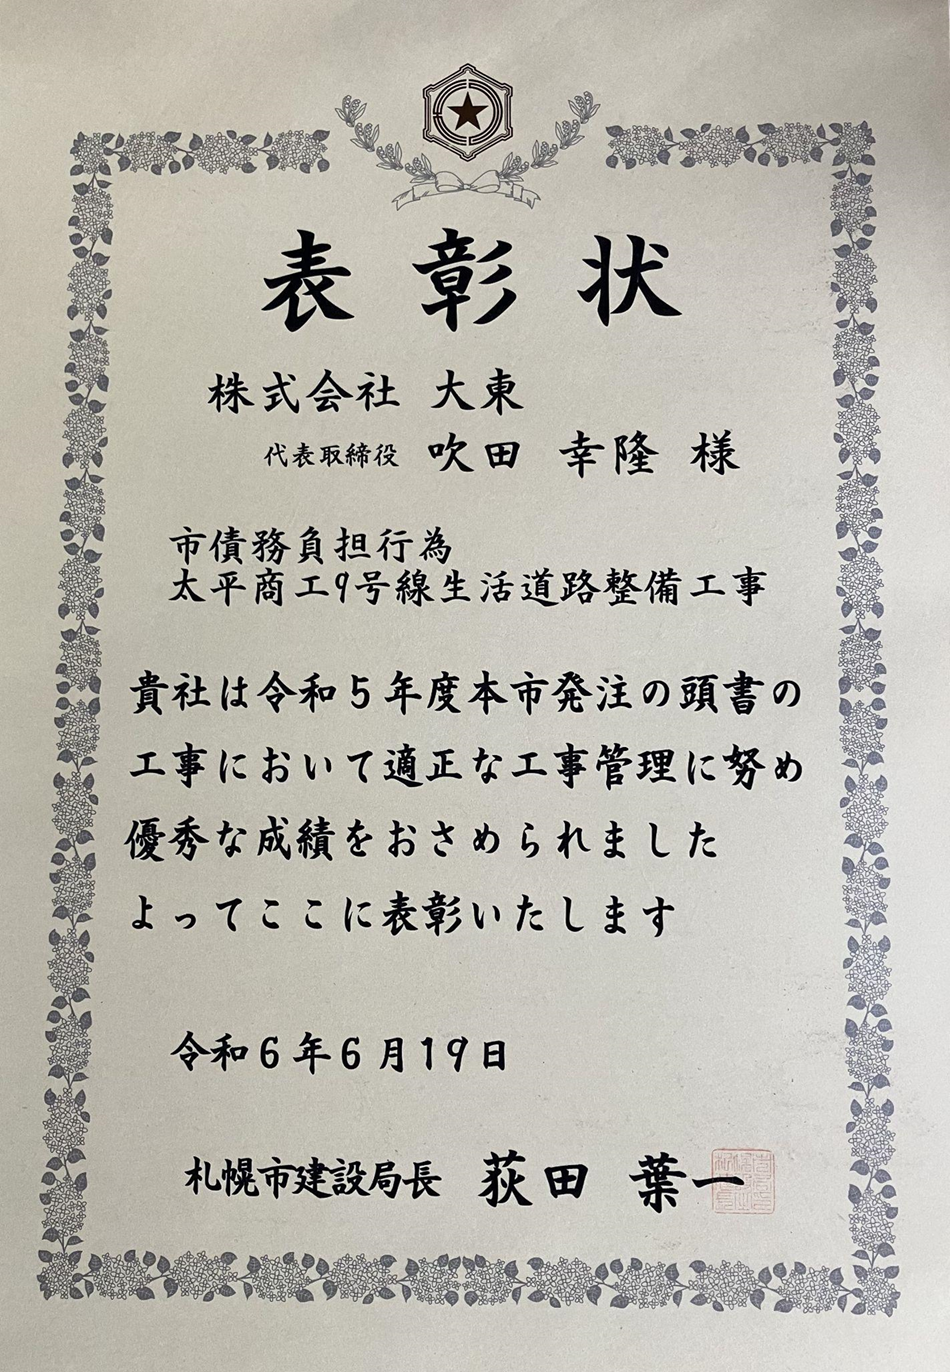 表彰状
株式会社 大東
代表取締役 吹田 幸隆 様
市債務負担行為
太平商工9号線生活道路整備工事
貴社は令和5年度本市発注の頭書の
工事において適正な工事管理に努め
優秀な成績をおさめられました
よってここに表彰いたします
令和6年6月19日
札幌市建設局長 荻田 葉一